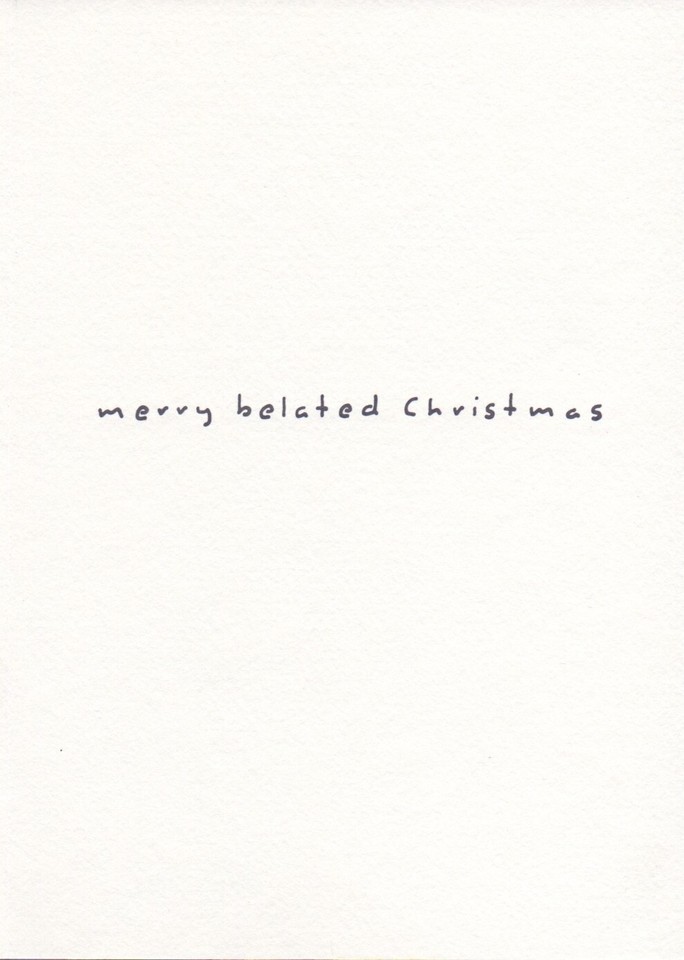 merry belated Christmas